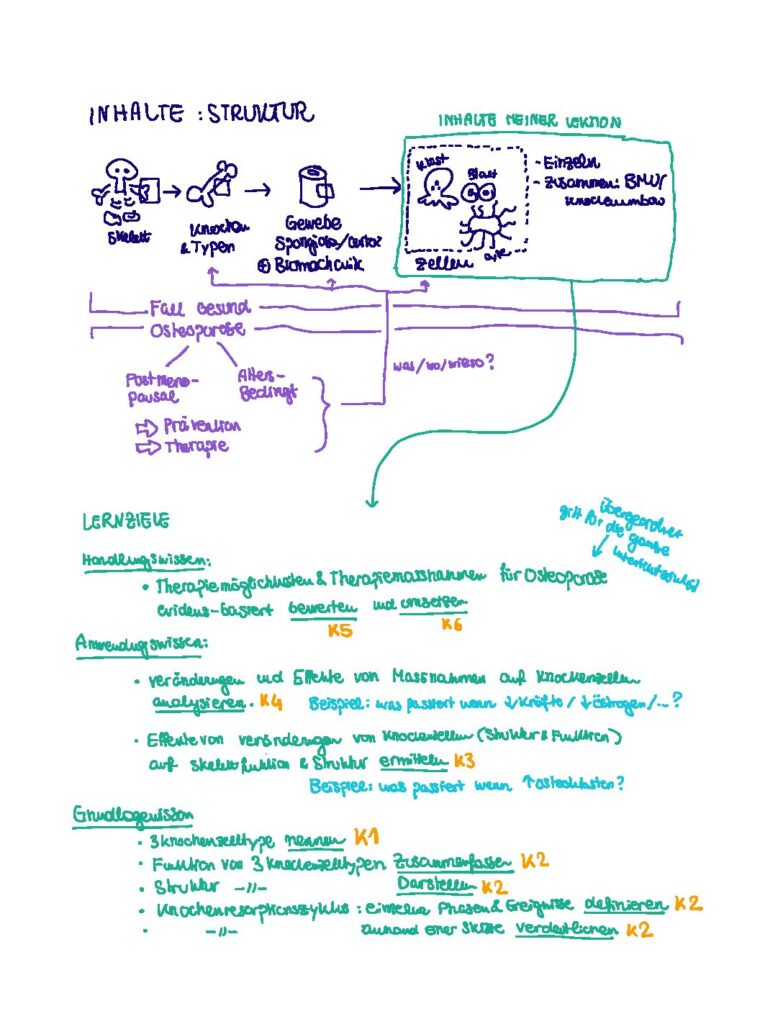 INHALTE : STRUKTUR
INHALTE MEINER LEKTION
Skelett
Knochen
& Typen
Gewebe
Spongiosa/Cortex
⊕ Biomechanik
Klast
Blast
Zyte
Zellen
- Einzeln
- Zusammen: BMU/
Knochenumbau
Fall Gesund
Osteoporose
Postmeno-
pausal
Alters-
Bedingt
⇨ Prävention
⇨ Therapie
was/wo/wieso?
LERNZIELE
übergeordnet
gilt für die ganze
Handlungswissen:
• Therapiemöglichkeiten & Therapiemassnahmen für Osteoporose
evidenz-basiert bewerten und umsetzen
K5 K6
Anwendungswissen:
• Veränderungen und Effekte von Massnahmen auf Knochenzellen
analysieren. K4 Beispiel: was passiert wenn ↓Kräfte / ↓Östrogen/... ?
• Effekte von Veränderungen von Knochenzellen (Struktur & Funktion)
auf Skelettfunktion & Struktur ermitteln K3
Beispiel: was passiert wenn ↑Osteoklasten?
Grundlagenwissen
• 3 Knochenzelltype nennen K1
• Funktion von 3 Knochenzelltypen Zusammenfassen K2
• Struktur -"- Darstellen K2
• Knochenresorptionszyklus : einzelne Phasen & Ereignisse definieren K2
• -"- anhand einer Skizze verdeutlichen K2